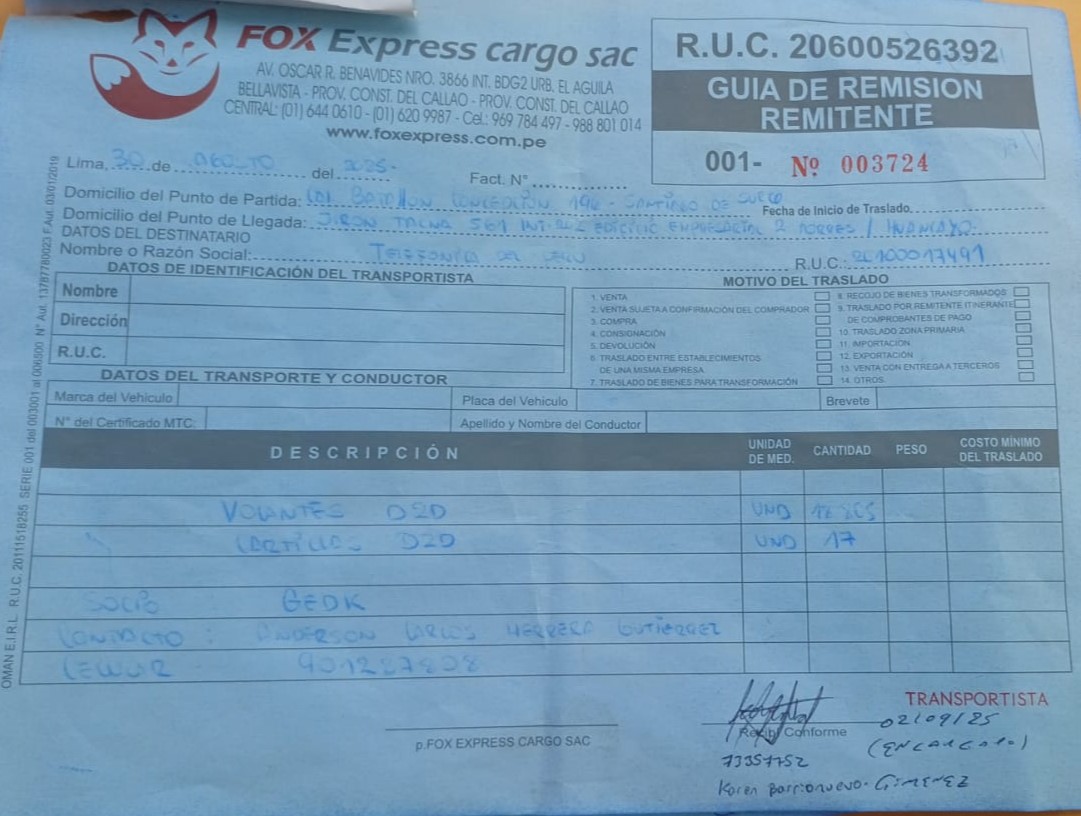 FOX Express cargo sac
AV. OSCAR R. BENAVIDES NRO. 3866 INT. BDG2 URB. EL AGUILA
BELLAVISTA - PROV. CONST. DEL CALLAO - PROV. CONST. DEL CALLAO
CENTRAL: (01) 644 0610 - (01) 620 9987 - Cel.: 969 784 497 - 988 801 014
www.foxexpress.com.pe
R.U.C. 20600526392
GUIA DE REMISION
REMITENTE
001- Nº 003724
Lima, 30 de AGOSTO del 2025- Fact. N°
Domicilio del Punto de Partida: CAL BATALLON CONCEPCIÓN 192 - SANTIAGO DE SURCO Fecha de Inicio de Traslado
Domicilio del Punto de Llegada: JIRON TACNA 561 INT. 202 EDIFICIO EMPRESARIAL 2 TORRES / HUANCAYO.
DATOS DEL DESTINATARIO
Nombre o Razón Social: TELEFONICA DEL PERU R.U.C.: 20100017491
DATOS DE IDENTIFICACIÓN DEL TRANSPORTISTA
Nombre
Dirección
R.U.C.
MOTIVO DEL TRASLADO
1. VENTA
2. VENTA SUJETA A CONFIRMACIÓN DEL COMPRADOR
3. COMPRA
4. CONSIGNACIÓN
5. DEVOLUCIÓN
6. TRASLADO ENTRE ESTABLECIMIENTOS
DE UNA MISMA EMPRESA
7. TRASLADO DE BIENES PARA TRANSFORMACIÓN
8. RECOJO DE BIENES TRANSFORMADOS
9. TRASLADO POR REMITENTE ITINERANTE
DE COMPROBANTES DE PAGO
10. TRASLADO ZONA PRIMARIA
11. IMPORTACIÓN
12. EXPORTACIÓN
13. VENTA CON ENTREGA A TERCEROS
14. OTROS
DATOS DEL TRANSPORTE Y CONDUCTOR
Marca del Vehículo Placa del Vehículo Brevete
N° del Certificado MTC: Apellido y Nombre del Conductor
DESCRIPCIÓN UNIDAD DE MED. CANTIDAD PESO COSTO MÍNIMO DEL TRASLADO
VOLANTES D2D UND
CARTILLAS D2D UND 17
SOCIO GEDK
CONTACTO : ANDERSON CARLOS HERRERA GUTIERREZ
CELULAR 901287808
p.FOX EXPRESS CARGO SAC
Recibí Conforme
TRANSPORTISTA
02/09/25
(ENCARGADO)
73357752
Karen Barrionuevo - GIMENEZ
OMAN E.I.R.L. R.U.C. 20111518255 SERIE 001 del 003001 al 006500 N° Aut. 13787780023 F.Aut. 03/01/2019